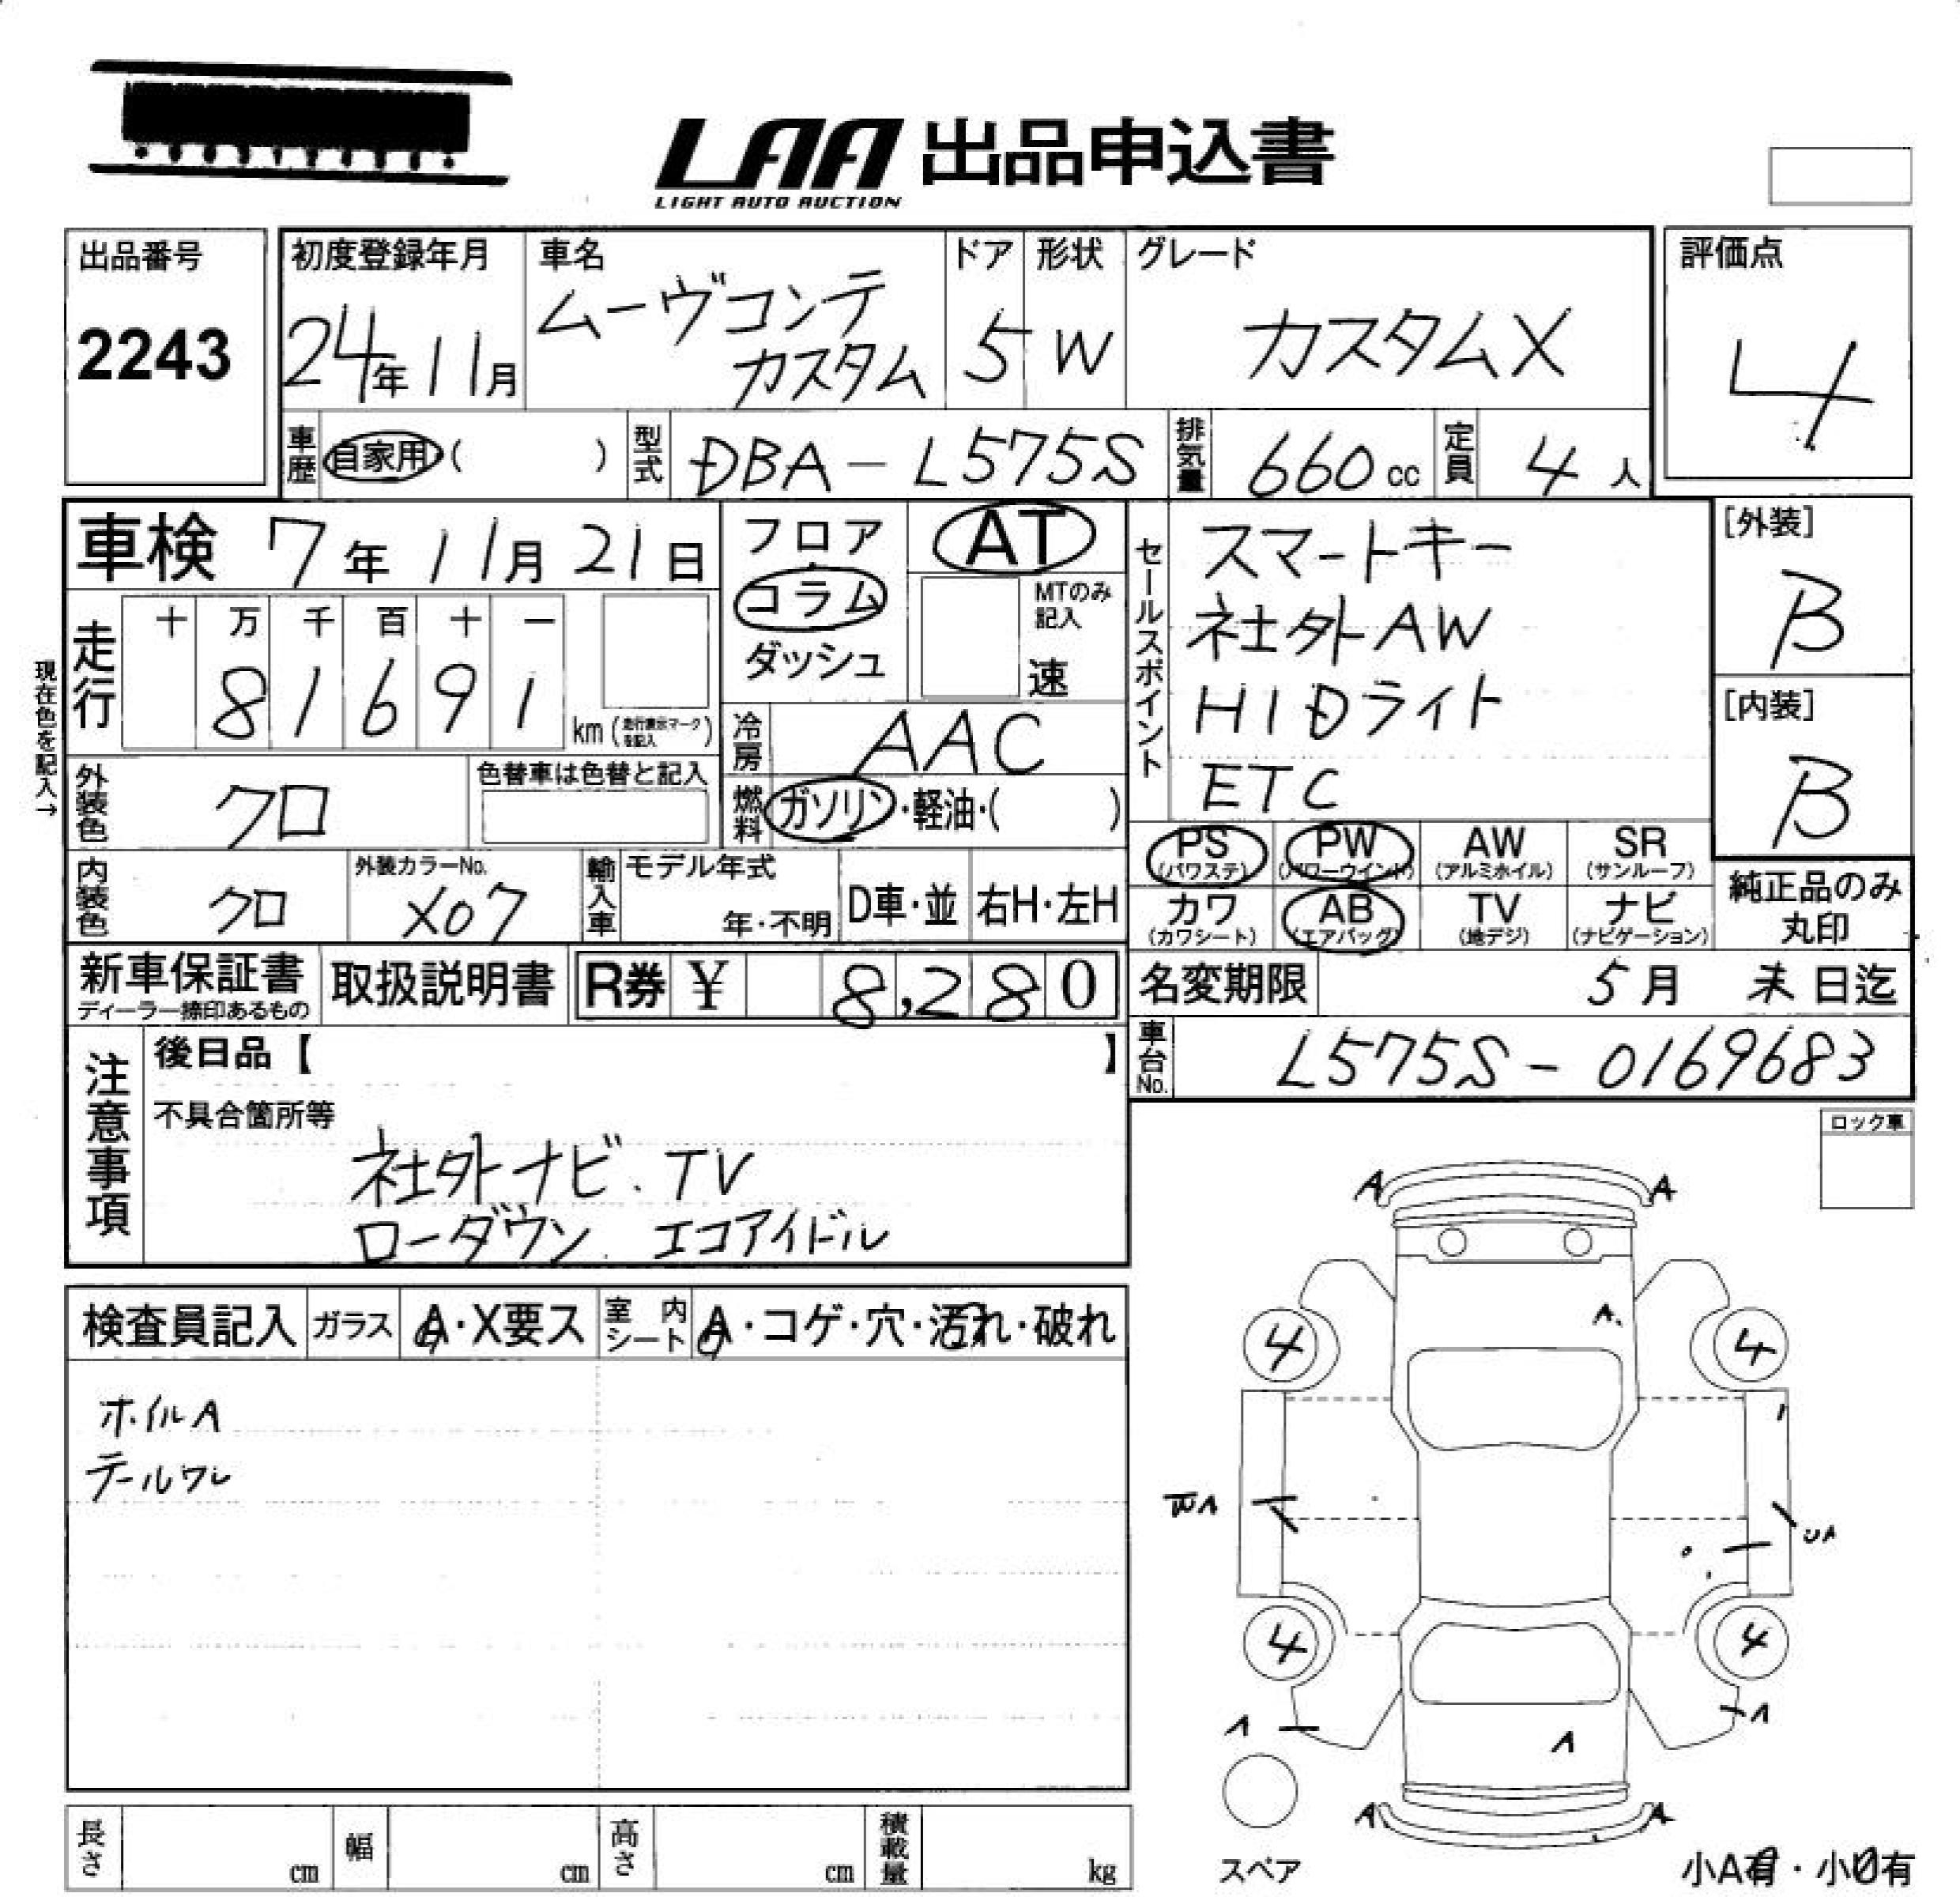 LAA 出品申込書
LIGHT AUTO AUCTION
出品番号
2243
初度登録年月
24年11月
車名
ムーヴコンテ
カスタム
ドア
5
形状
W
グレード
カスタムX
評価点
4
車歴 自家用 ( )
型式 DBA-L575S
排気量 660 cc
定員 4 人
車検 7年 11月 21日
現在色を記入→
走行
十 万 千 百 十 一
8 1 6 9 1
km (走行表示マークを記入)
フロア
コラム
ダッシュ
AT
MTのみ
記入
速
冷房 AAC
燃料 ガソリン・軽油・( )
セールスポイント
スマートキー
社外AW
HIDライト
ETC
[外装]
B
[内装]
B
外装色 クロ
色替車は色替と記入
内装色 クロ
外装カラーNo.
X07
輸入車
モデル年式
年・不明
D車・並
右H・左H
PS (パワステ)
PW (パワーウインド)
AW (アルミホイル)
SR (サンルーフ)
カワ (カワシート)
AB (エアバッグ)
TV (地デジ)
ナビ (ナビゲーション)
純正品のみ
丸印
新車保証書
ディーラー捺印あるもの
取扱説明書
R券 ¥ 8,280
名変期限 5月 末日迄
車台No. L575S-0169683
注意事項
後日品【 】
不具合箇所等
社外ナビ.TV
ローダウン. エコアイドル
ロック車
検査員記入
ガラス A・X要ス
室内シート A・コゲ・穴・汚れ・破れ
ホイルA
テールワレ
A A
A.
4 4
UA
4 4
A A
A
A A
スペア
小A有・小U有
長さ cm
幅 cm
高さ cm
積載量 kg